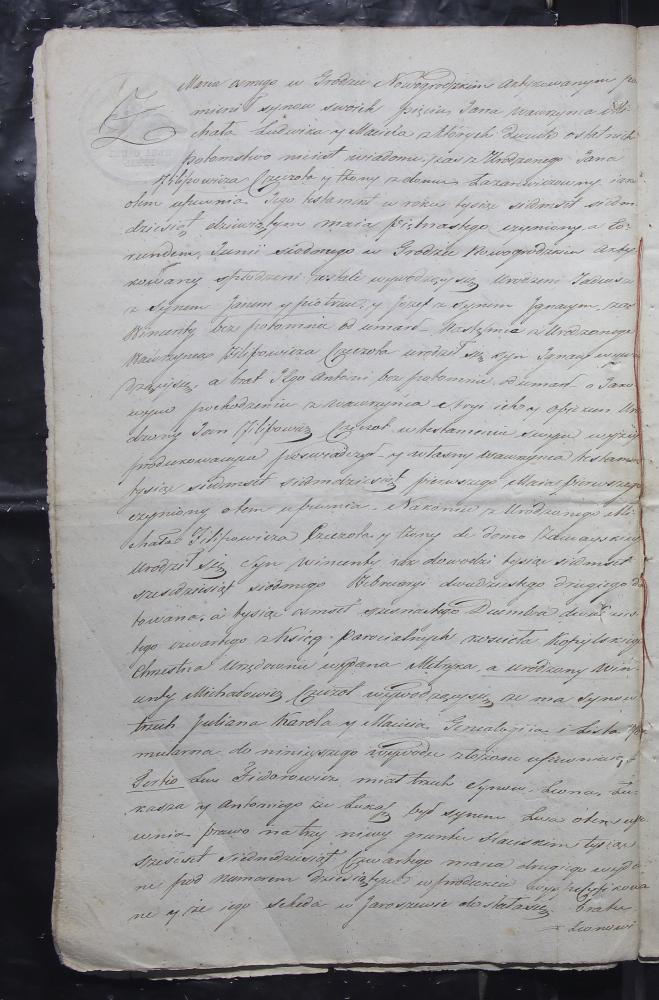 Marca osmego w Grodzie Nowogrodzkim Aktykowanym po
mienił synow swoich pięciu Jana Wawrzyna Mi
chała Ludwika y Macieia z których dwuch ostatnich
potomstwo nieiest wiadome, zaś z Urodzonego Jana
Filipowicza Czeczota y Żony z domu Łazarewiczowny iak
otem upewnia Jego testament w roku tysiąc siedmset siedm
dziesiąt dziewiątym maia piętnastego czyniony a Eo
rundem Junii siodmego w Grodzie Nowogrodzkim Akty
kowany spłodzeni zostali wywodzący się Urodzeni Tadeusz
z Synem Janem y Piotrem, y Józef z Synem Ignacym, zaś
Wincenty bez potomnie od umarł.
Wawrzynca Filipowicza Czeczota urodził się syn Ignacy wywo
dzący się, a brat Jego Antoni bez potomnie od umarł o Jako
wym pochodzeniu z Wawrzyńca stryi ich y opiekun Uro
dzony Jan Filipowicz Czeczot w testamencie swym wyżey
produkowanym poswiadczył y własny Wawrzyna testament
tysiąc siedmset siedmdziesiąt pierwszego Maia pierwszego
czyniony otem upewnia. Nakoniec z Urodzonego Mi
chała Filipowicza Czeczota y Żony de domo
Urodził się Syn Wincenty iak dowodzi tysiąc siedmset
szesdziesiąt siodmego Februaryi dwudziestego drugiego da
towana, a tysiąc osmset szesnastego Decembra dwudzies
tego czwartego z Ksiąg Parochialnych koscioła Kopylskiego
Chrzestna Urzędownie wydana Metryka, a urodzony Win
centy Michałowicz Czeczot wywodzący się, że ma Synow
trzech Juliana Karola y Macieia Genealogija i Lista For
mularna do niniejszego wywodu złożone upewniaią
Tertio Lew Fiedorowicz miał trzech Synow, Leona, Łu
kasza y Antoniego że Łukasz był synem Lwa otem upe
wnia prawo na trzy niwy gruntu Słuckim tysiąc
sześćset siedmdziesiąt Czwartego marca drugiego wyda
ne pod numerem dziesiątym w produkcie wyż specyfikowa
ne y że iego scheda w Jaroszewie dostała się bratu
Leonowi